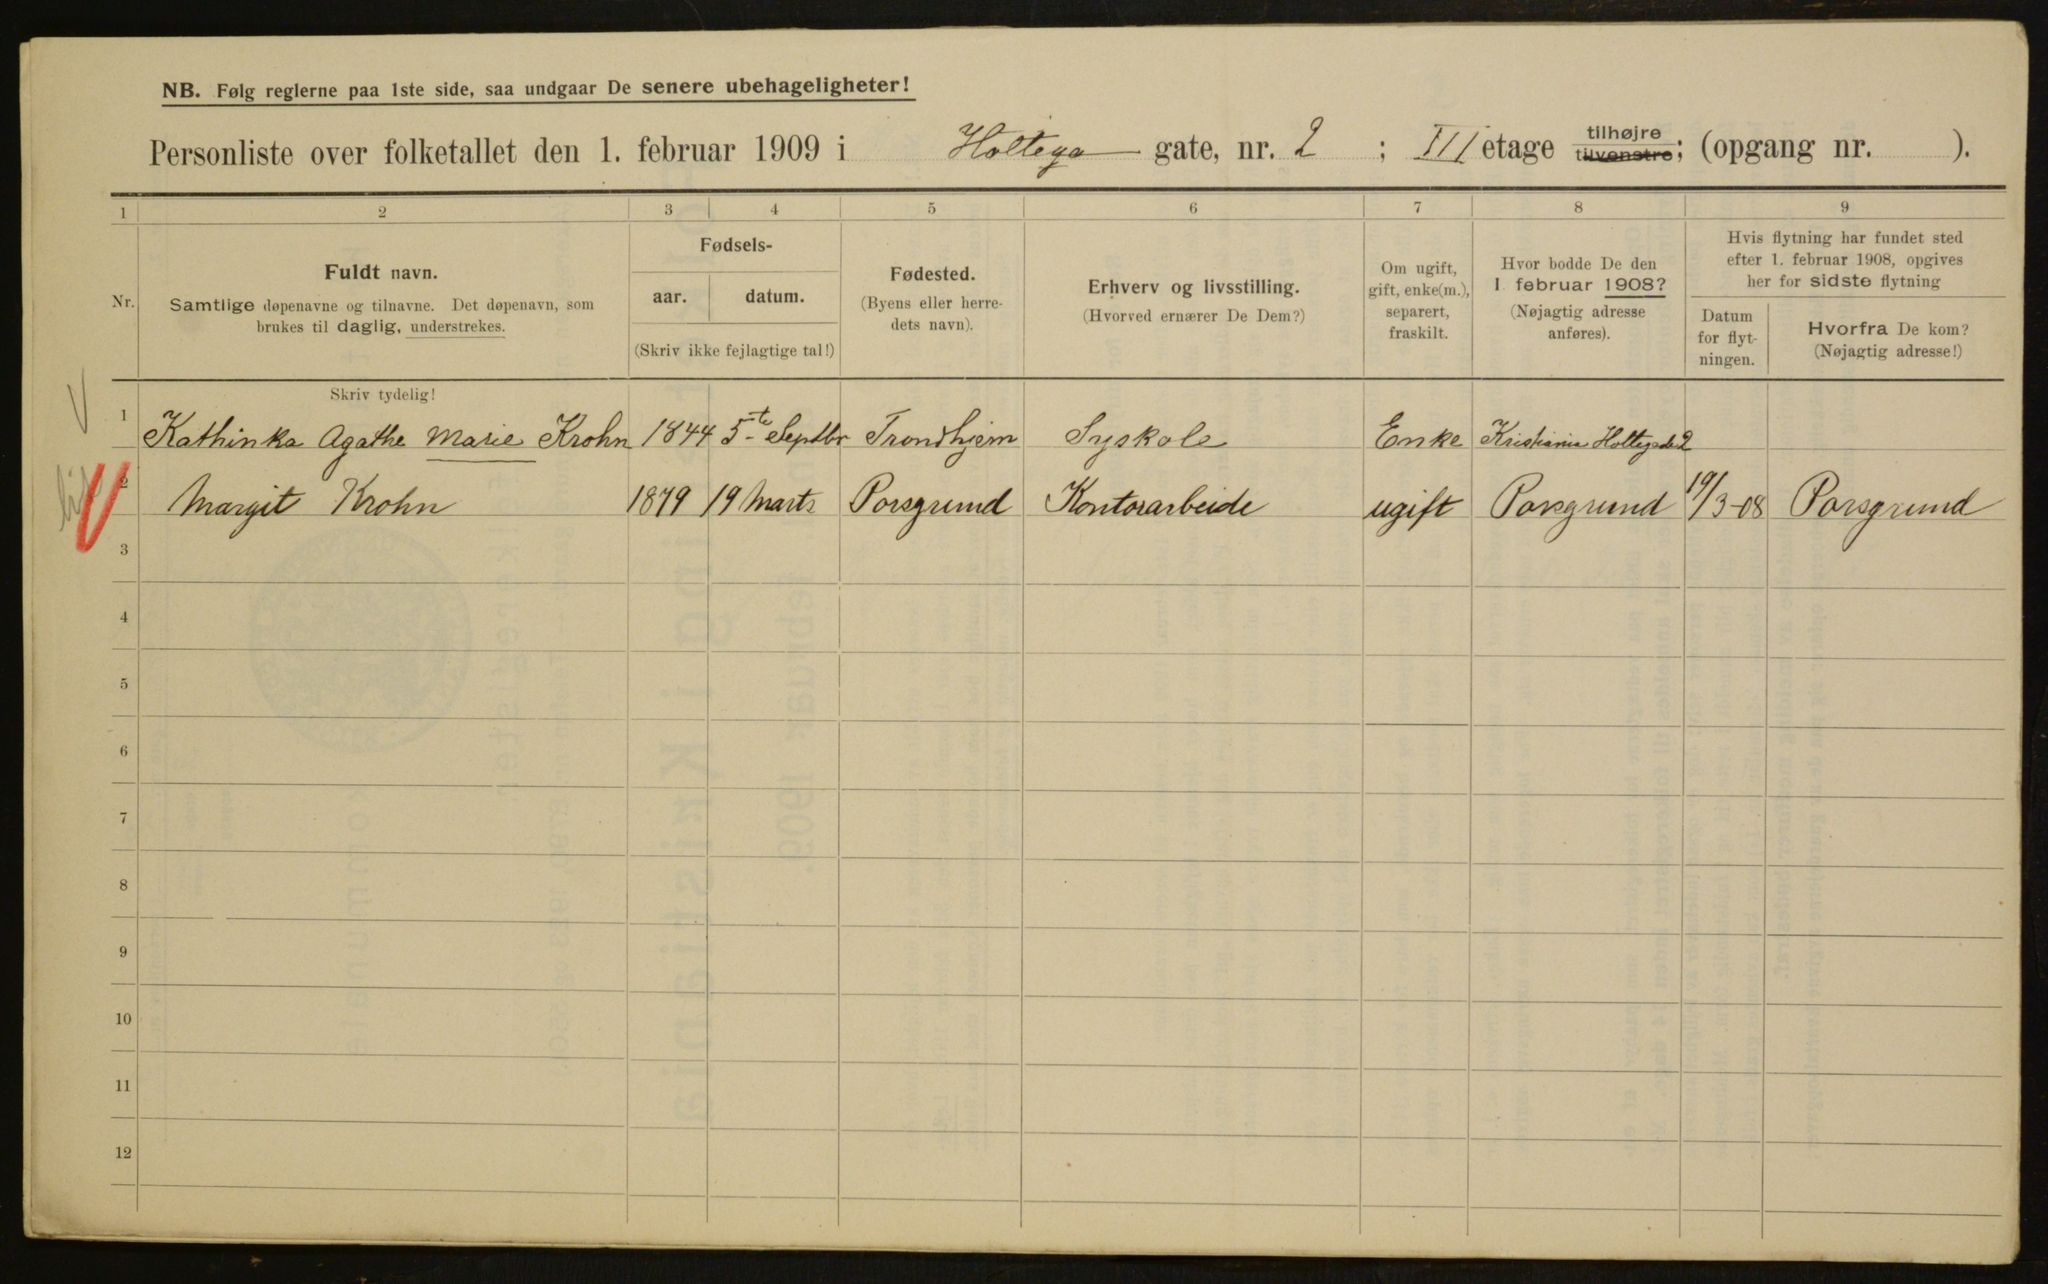 NB. Følg reglerne paa 1ste side, saa undgaar De senere ubehageligheter!
Personliste over folketallet den 1. februar 1909 i Holtega gate, nr. 2 ; III etage tilhøjre tilvenstre; (opgang nr. ).
1 2 3 4 5 6 7 8 9
Nr.
Fuldt navn.
Samtlige døpenavne og tilnavne. Det døpenavn, som
brukes til daglig, understrekes.
Fødsels-
aar. datum.
(Skriv ikke fejlagtige tal!)
Fødested.
(Byens eller herre-
dets navn).
Erhverv og livsstilling.
(Hvorved ernærer De Dem?)
Om ugift,
gift, enke(m.),
separert,
fraskilt.
Hvor bodde De den
1. februar 1908?
(Nøjagtig adresse
anføres).
Hvis flytning har fundet sted
efter 1. februar 1908, opgives
her for sidste flytning
Datum
for flyt-
ningen.
Hvorfra De kom?
(Nøjagtig adresse!)
Skriv tydelig!
1 Kathinka Agathe Marie Krohn 1844 5te Septbr Trondhjem Syskole Enke Kristiania Holtegade 2
2 Margit Krohn 1879 19 Marts Porsgrund Kontorarbeide ugift Porsgrund 19/3-08 Porsgrund
3
4
5
6
7
8
9
10
11
12